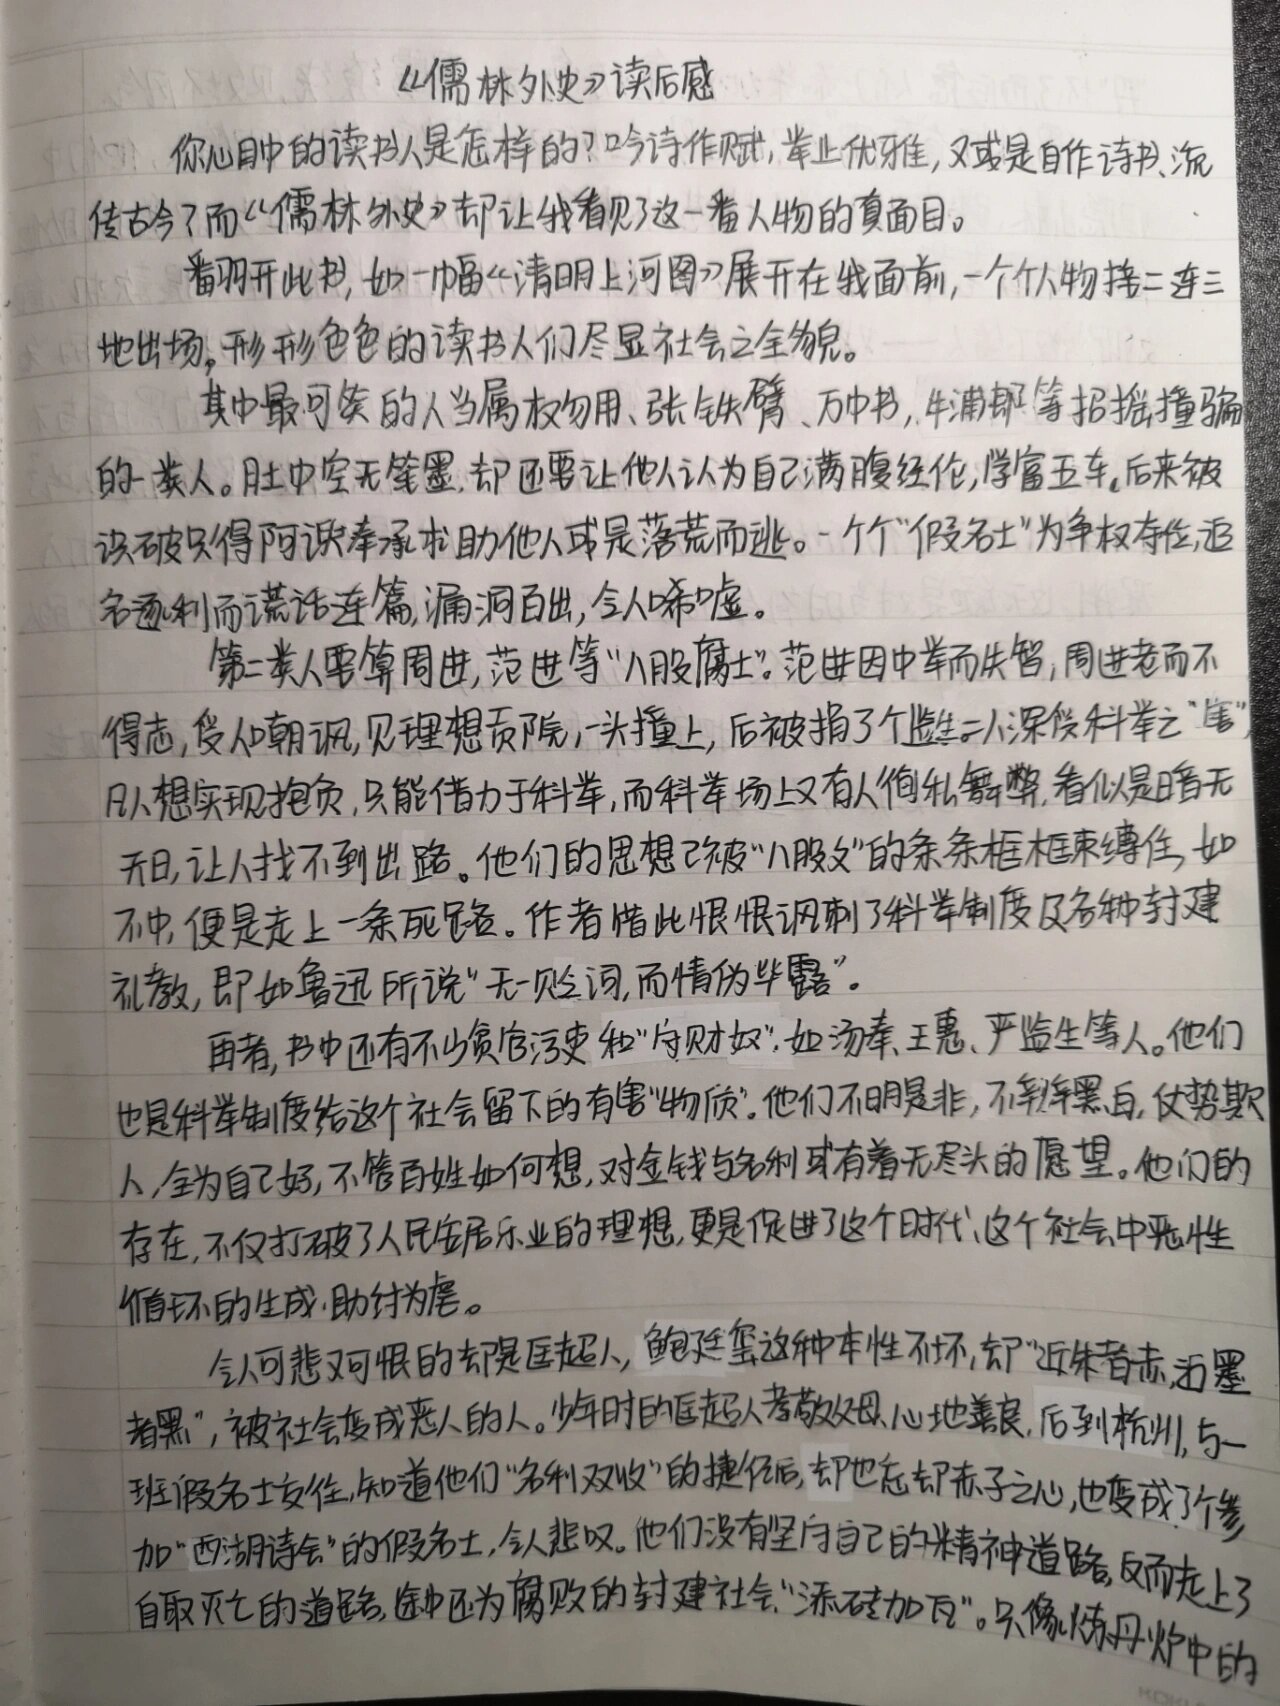 《儒林外史》读后感
你心目中的读书人是怎样的？吟诗作赋，举止优雅，又或是自作诗书、流
传古今？而《儒林外史》却让我看见了这一番人物的真面目。
翻开此书，如一幅《清明上河图》展开在我面前，一个个人物接二连三
地出场。形形色色的读书人们尽显社会之全貌。
其中最可笑的人当属权勿用、张铁臂、万中书，牛浦郎等招摇撞骗
的一类人。肚中空无笔墨，却还要让他人认为自己满腹经伦，学富五车。后来被
识破只得阿谀奉承求助他人或是落荒而逃。一个个“假名士”为争权夺位，追
名逐利而谎话连篇，漏洞百出，令人唏嘘。
第二类人要算周进，范进等“八股腐士”。范进因中举而失智，周进老而不
得志，受人嘲讽，见理想贡院，一头撞上，后被捐了个监生。二人深受科举之“害”，
凡人想实现抱负，只能借力于科举，而科举场上又有人徇私舞弊，看似是暗无
天日，让人找不到出路。他们的思想已被“八股文”的条条框框束缚住，如
不中，便是走上一条死路。作者借此恨恨讽刺了科举制度及各种封建
礼教，即如鲁迅所说“无一贬词，而情伪毕露”。
再者，书中还有不少贪官污吏和“守财奴”，如汤奉、王惠、严监生等人。他们
也是科举制度给这个社会留下的有害“物质”。他们不明是非，不辩黑白，仗势欺
人，全为自己好，不管百姓如何想，对金钱与名利或有着无尽头的愿望。他们的
存在，不仅打破了人民安居乐业的理想，更是促进了这个时代、这个社会中恶性
循环的生成，助纣为虐。
令人可悲又可恨的却是匡超人，鲍廷玺这种本性不坏，却“近朱者赤，近墨
者黑”，被社会变成恶人的人。少年时的匡超人孝敬父母、心地善良，后到杭州，与一
班假名士交往，知道他们“名利双收”的捷径后，却也忘却赤子之心，也变成了个参
加“西湖诗会”的假名士，令人悲叹。他们没有坚守自己的精神道路，反而走上了
自取灭亡的道路，途中还为腐败的封建社会“添砖加瓦”。只像炼丹炉中的